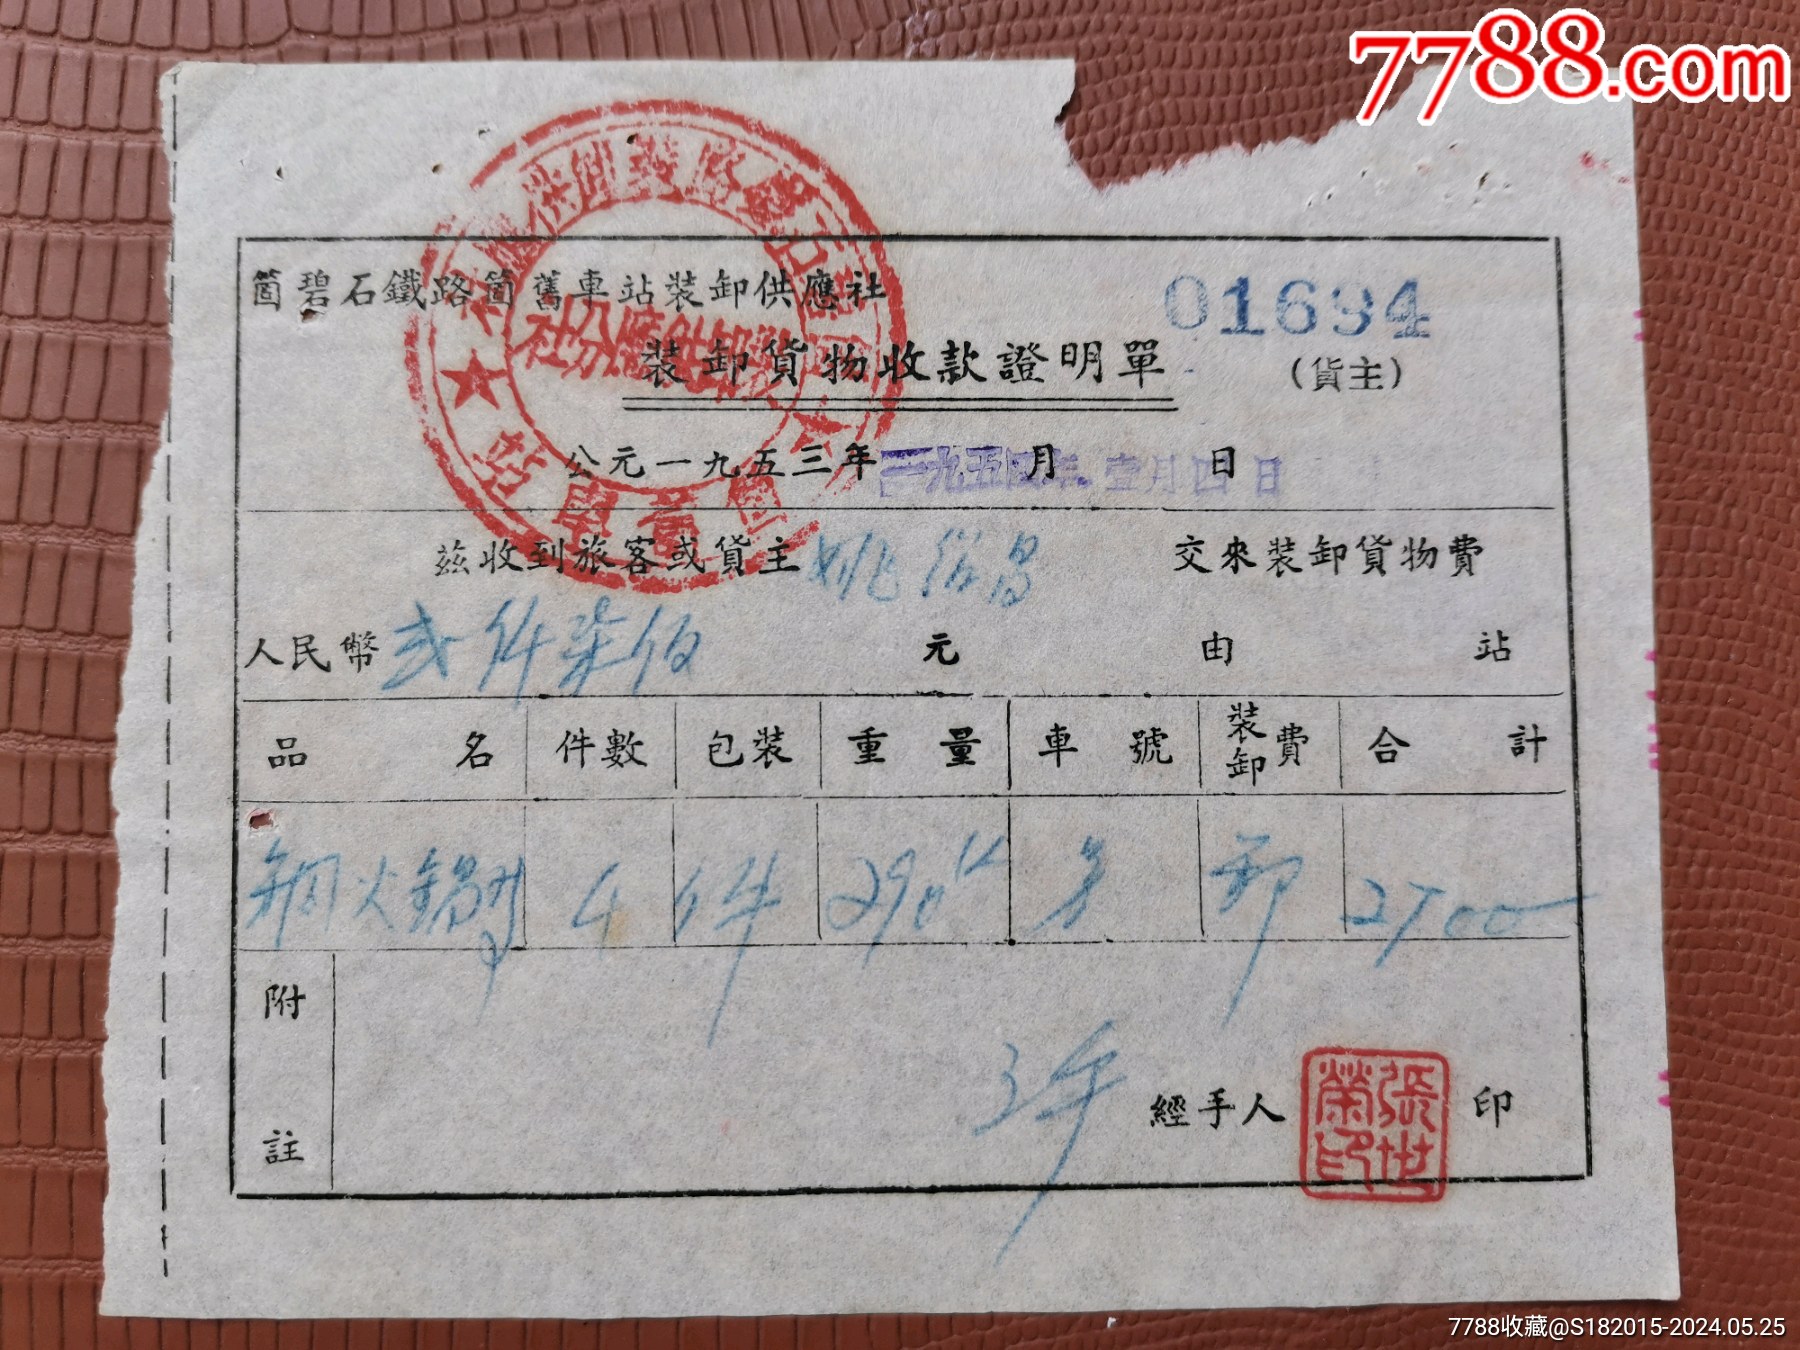 7788.com
箇碧石鐵路箇舊車站裝卸供應社
01694
裝卸貨物收款證明單
(貨主)
公元一九五三年 月 日
一九五四年壹月四日
茲收到旅客或貨主姚 昌 交來裝卸貨物費
人民幣弍仟柒佰 元 由 站
品 名 件數 包裝 重 量 車 號 裝卸費 合 計
銅火鍋 4 件 290 卸 2700
附
註
經手人 張世榮印 印
7788收藏@S182015-2024.05.25